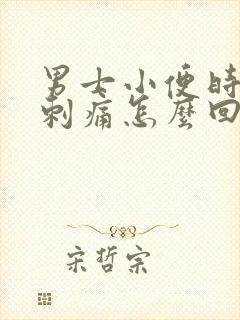 男士小便时
刺痛怎麼回
宋哲宗